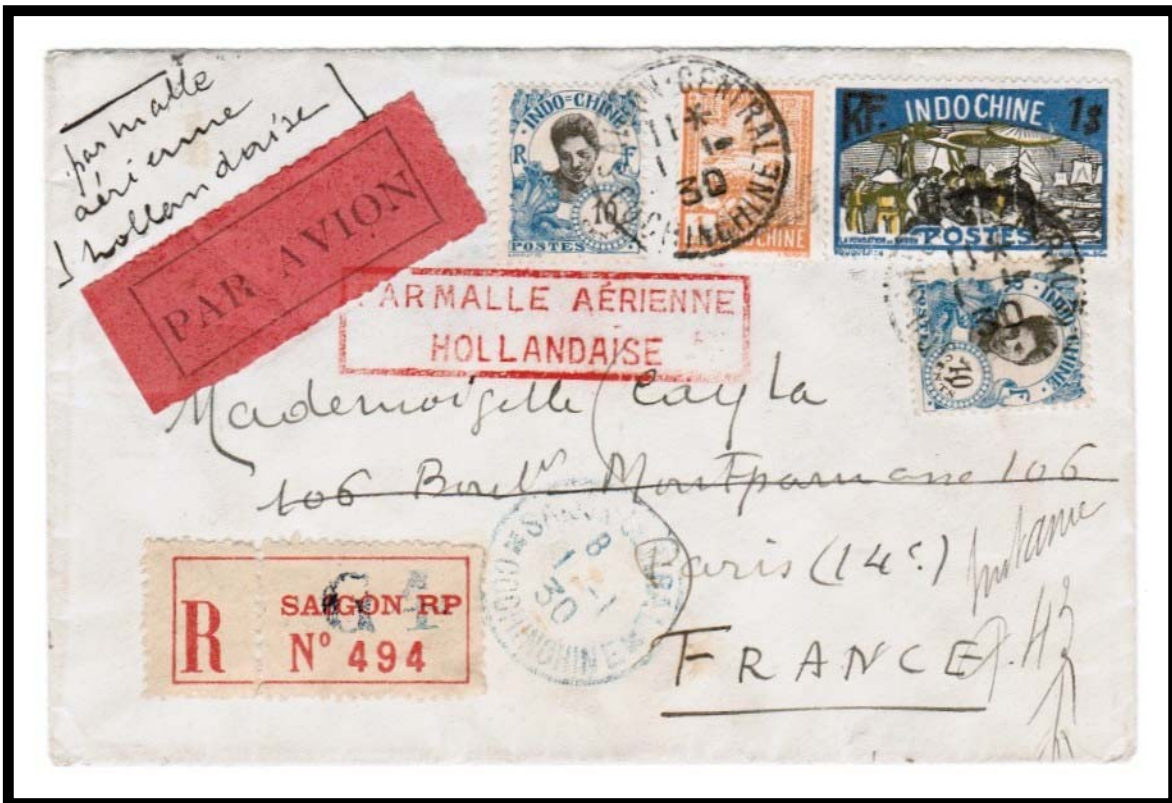 par malle
aérienne
hollandaise
PAR AVION
INDO=CHINE
R F
10
POSTES
CENTRAL
11 *
1 - 1
30
COCHINCHINE
1
INDOCHINE
RF. INDOCHINE 1$
POSTES
11 *
1 - 1
30
INDO=CHINE
10
CENTS
F
PAR MALLE AÉRIENNE
HOLLANDAISE
Mademoiselle Cayla
106 Boul. Montparnasse 106
Paris (14e)
FRANCE
R
SAIGON RP
N° 494
G1
8
1 - 1
30
COCHINCHINE